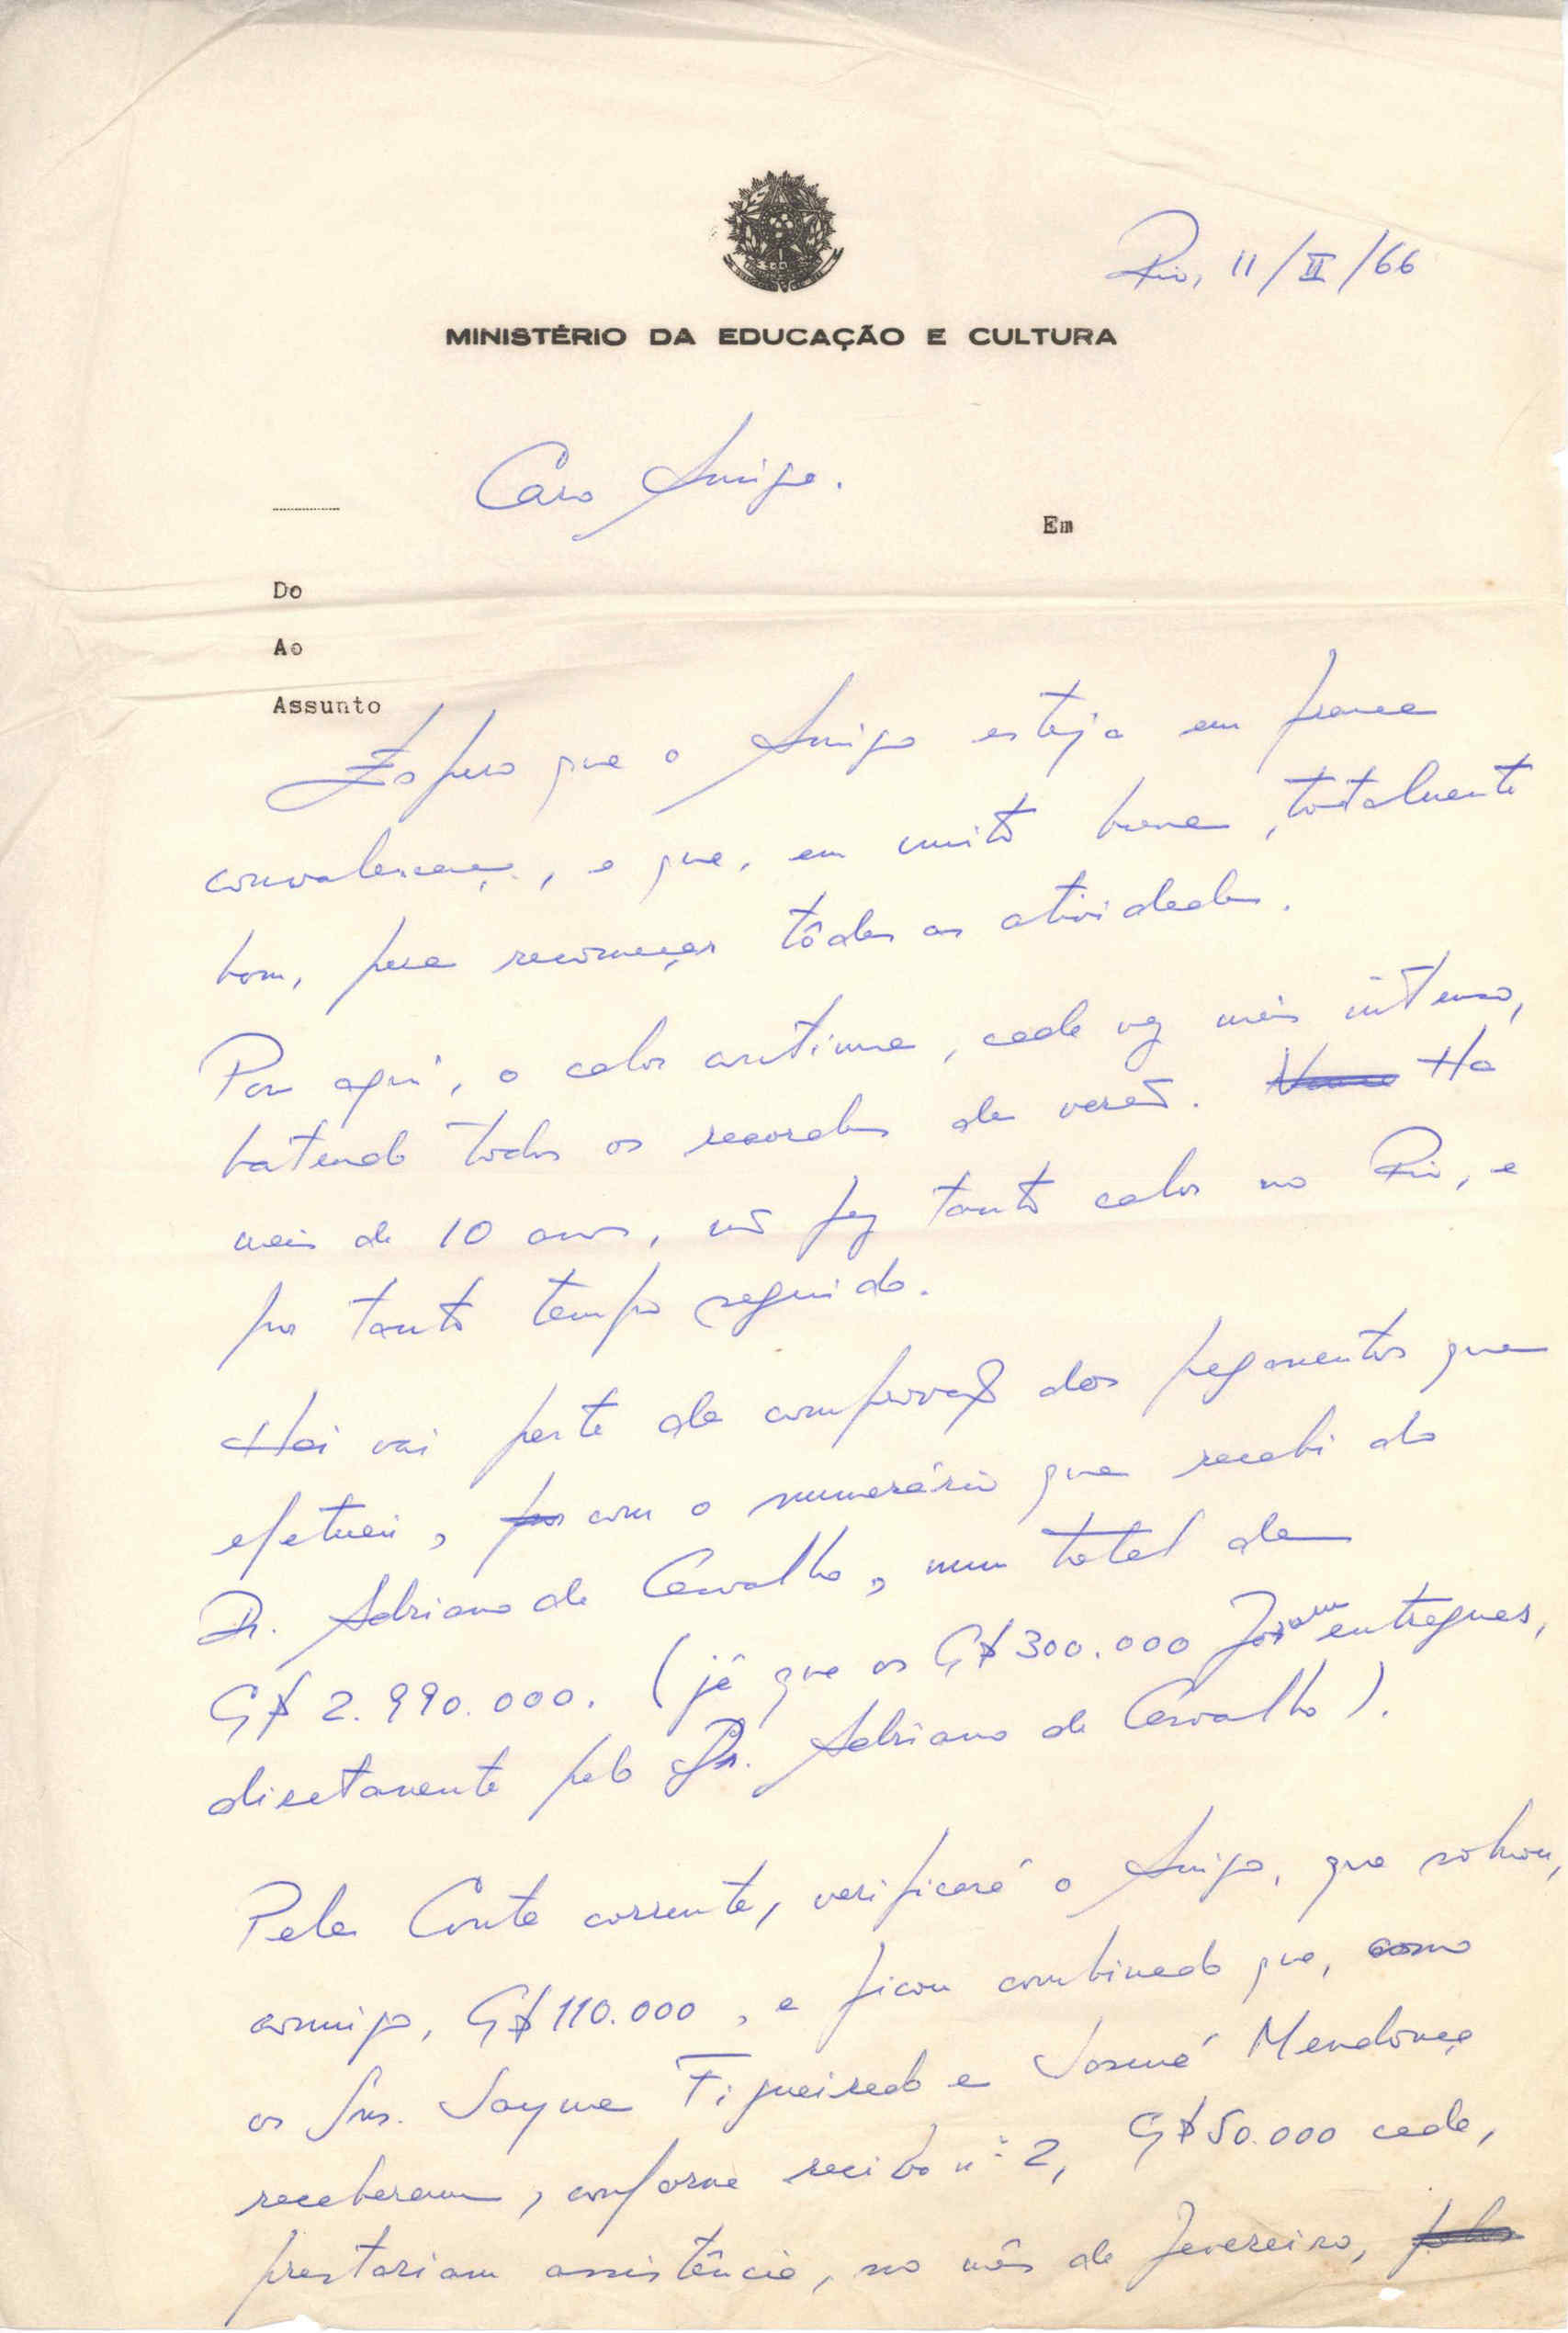 Rio, 11/II/66
MINISTÉRIO DA EDUCAÇÃO E CULTURA
Caro Amigo.
Em
Do
Ao
Assunto
Espero que o Amigo esteja em franca
convalescença, e que, em muito breve, totalmente
bom, para recomeçar tôdas as atividades.
Por aqui, o calor continua, cada vez mais intenso,
batendo todos os recordes de verão. Ha
mais de 10 anos, não fez tanto calor no Rio, e
por tanto tempo seguido.
Hai vai parte da comprovação dos pagamentos que
efetuei, com o numerário que recebi do
Dr. Adriano de Carvalho, num total de
Cr$ 2.990.000. (já que os Cr$ 300.000 foram entregues,
diretamente pelo Dr. Adriano de Carvalho).
Pela Conta corrente, verificará o Amigo, que sobrou,
comigo, Cr$ 110.000, e ficou combinado que, como
os Srs. Jayme Figueiredo e Josué Mendonça
receberam, conforme recibo nº 2, Cr$ 50.000 cada,
prestariam assistência, no mês de Fevereiro,